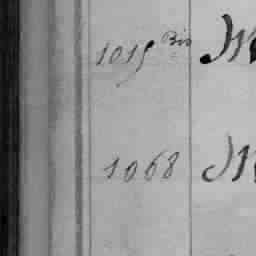 1015 Bis M
1068 M